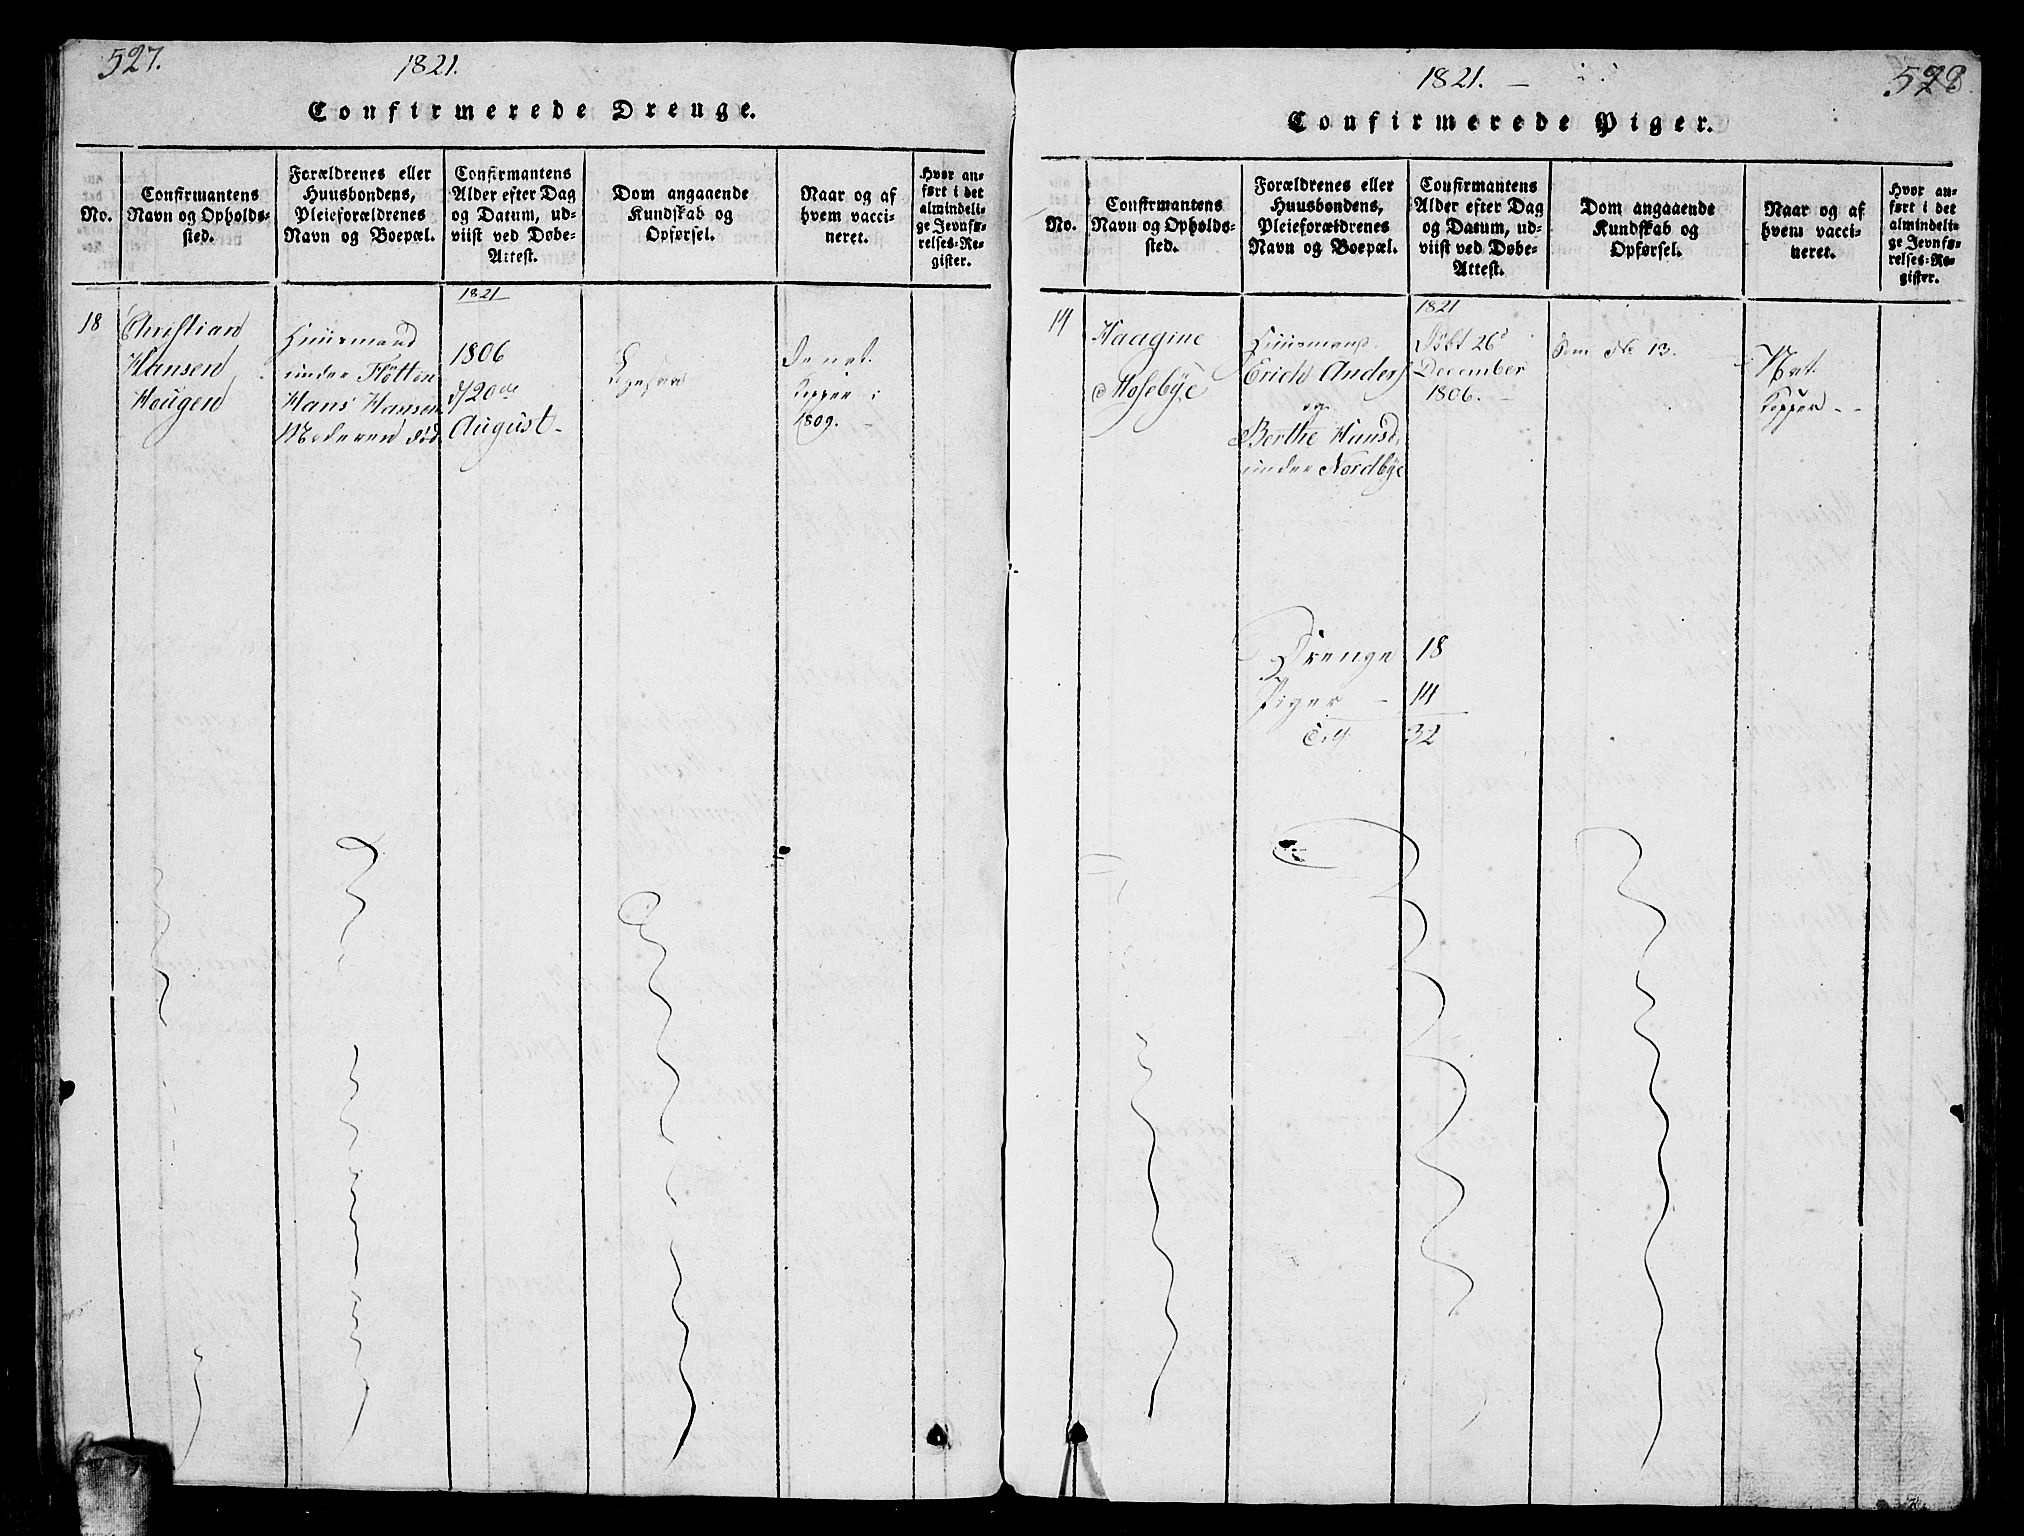 527.
1821.
Confirmerede Drenge.
No.
Confirmantens
Navn og Opholds-
sted.
Forældrenes eller
Huusbondens,
Pleieforældrenes
Navn og Boepæl.
Confirmantens
Alder efter Dag
og Datum, ud-
viist ved Døbe-
Attest.
Dom angaaende
Kundskab og
Opførsel.
Naar og af
hvem vacci-
neret.
Hvor an-
ført i det
almindeli-
ge Jevnfø-
relses-Re-
gister.
18
Christian
Hansen
Hougen
Huusmand
under Fløtten
Hans Hansen
Moderen død.
1821
1806
d/20de
August -
Ligesaa
De nat.
Kopper i
1809. -
1821. -
578
Confirmerede Piger.
No.
Confirmantens
Navn og Opholds-
sted.
Forældrenes eller
Huusbondens,
Pleieforældrenes
Navn og Boepæl.
Confirmantens
Alder efter Dag
og Datum, ud-
viist ved Døbe-
Attest.
Dom angaaende
Kundskab og
Opførsel.
Naar og af
hvem vacci-
neret.
Hvor an-
ført i det
almindeli-
ge Jevnfø-
relses-Re-
gister.
14
Haagine
Mosebye
Huusmand
Erich Anders
og
Berthe Hansd.
under Nordbye
1821
Døbt 26d
December
1806. -
Som No 13. -
Nat.
Kopper - -
Drenge 18
Piger - 14
32